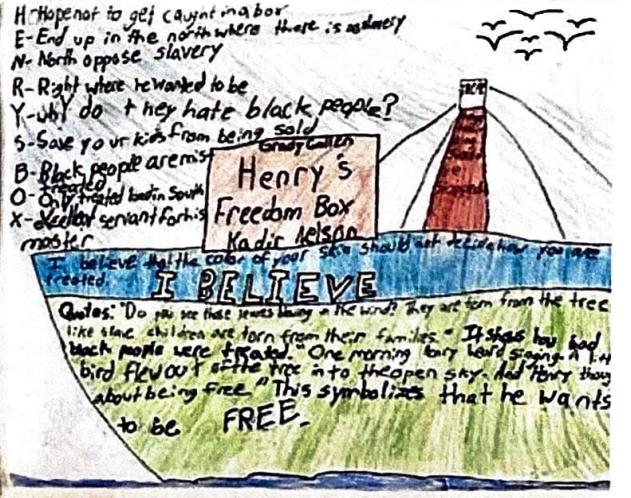 H-Hope not to get caught in a box
E-End up in the north where there is no slavery
N-North oppose slavery
R-Right where he wanted to be
Y-whY do they hate black people?
S-Save your kids from being sold
B-Black people are mis
treated
O-Only treated bad in South
X-eXellent servant for his
master
Grady Cullen
Henry's
Freedom Box
Kadir Nelson
I believe that the color of your skin should not decide how you are
treated.
I BELIEVE
Quotes: "Do you see those leaves blowing in the wind? They are torn from the tree
like slave children are torn from their families." It shows how bad
black people were treated. "One morning Henry heard singing. A litt
bird flew out of the tree into the open sky. And Henry thoug
about being free." This symbolizes that he wants
to be FREE.